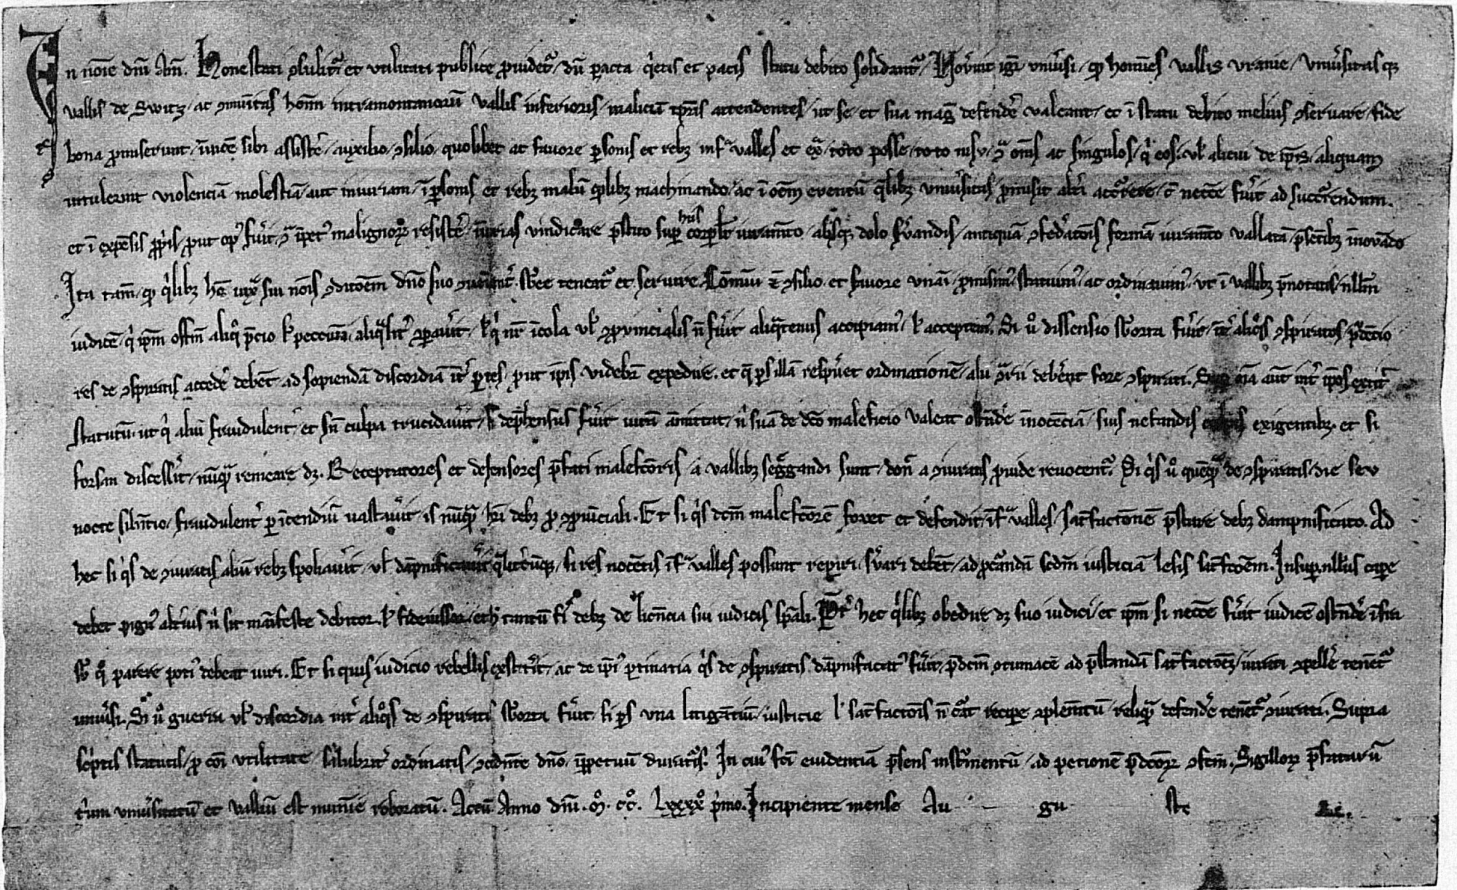 In nōīe dn̄i Am̄. Honestati ꝯsulit᷑ et vtilitati publice ꝓuidet᷑ / dū pacta q̇etis et pacis statu debito solidant᷑ / Nou̾int igi᷑ vniu̾si / ꝙ hom̄es vallis vranie / vniu̾sitasꝫ
vallis de Switz / ac ꝯmūitas hom̄ intramontanorū vallis inferioris / maliciā tp̄ris attendentes / ut se et sua mag̾ defende̾ valeant / et ī statu debito melius ꝯseruare / fide
bona ꝓmiserunt / inuicē sibi assiste̾ / auxilio / ꝯsilio / quolibet ac fauore ꝑsonis et rebꝫ / inf᷑ valles et ex᷑ / toto posse / toto nisu / ꝯ᷑ om̄s ac singulos / q̇ eos / vl̾ alicui de ip̄is / aliquam
intulerint violenciā molestiā / aut iniuriam / ī ꝑsonis et rebꝫ malū qd̾libꝫ machinando / ac ī oēm euentū q̾libꝫ vniu̾sitas ꝓmisit alt̾i accurrere / cū necc̄e fu̾it ad succurrendum.
et ī expēsis ꝓp̾is / ꝓut opꝰ fu̾it / ꝯ᷑ īpetꝰ malignoꝝ resiste̾ / iniurias vindicare p̾stito sup̾ hijs corꝑali iuramēto / absqꝫ dolo s̾uandis / antiquā ꝯfed̾atōis formā iuramēto vallatā / p̄sētibꝫ īnouādo
Ita tam̄ / ꝙ q̇libꝫ hō iux᷑ sui nōis ꝯditōem dn̄o suo ꝯueniēt̾ / sb̾ee teneat᷑ et seruire. Cōmuni ēt ꝯsilio et fauore vnāi / ꝓmisimꝰ / statuimꝰ / ac ordinauimꝰ / vt ī vallibꝫ p̄notatis / nullū
iudicē / q̇ ip̄m offm̄ aliq̊ p̄cio ul̾ peccunia / aliq̾lit̾ ꝯꝑau̾it / ul̾ q̇ nr̄ īcola vl̾ ꝓuincialis nō fu̾it aliq̾tenus accipiamꝰ / ul̾ acceptemꝰ. Si u̾o dissensio sub̾orta fu̾it / int̾ aliq̊s ꝯspiratos / p̾dēcio
res de ꝯspiratis accede̾ debēt / ad sopiendā discordiā int̾ ꝑtes / ꝓut ip̄is videbit᷑ expedire. et q̄ ꝑs illā respu̾et ordinationē / alii ꝯ᷑rii deb̾ent fore ꝯspirati. Suꝑ oīa aut̄ int̾ ip̄os extit̾
statutū. ut q̇ aliū fraudulent̾ / et sn̄ culpa trucidau̾it / si dep̾hensus fu̾it vitā amittat / nisi suā de dc̄o maleficio valeat ostende̾ īnocēciā / suis nefandis culpis exigentibꝫ. et si
forsan discessit̾ / nūq̾ remeare dꝫ. Receptatores et defensores p̄fati malefcōris / a vallibꝫ seg̾gandi sunt / donec a ꝯiuratis ꝓuide reuocent᷑. Si q̇s u̾o queq̾ de ꝯspiratis / die seu
nocte silentio / fraudulent̾ ꝑ īcendiū vastau̾it / is nūq̾ hr̄i debꝫ ꝓ ꝯꝓuīciali. Et si q̇s dc̄m malefcōrē fouet et defendit / inf᷑ valles / satisfactionē p̄stare debꝫ dampnificato. Ad
hec si q̇s de ꝯiuratis aliū rebꝫ spoliau̾it / vl̾ dāpnificau̾it q̾lit̾cūqꝫ / si res nocētis inf᷑ valles possunt reperiri / s̾uari debēt / ad ꝓcurandā scdm̄ iusticiā lesis satisfactōem. Insuper nullus capere
debet pignꝰ alteriꝰ nisi sit manifeste debitor. ul̾ fideiussor / et h̾ tantū fieri debꝫ de licencia sui iudicis sp̄ali. Pret̾ hec q̾libꝫ obedire dꝫ suo iudici / et ip̄m si necc̄e fu̾it iudicē ostende̾ infra
sub quo parere poti᷑ debeat iuri. Et si quis iudicio rebellis exstit̾it / ac de ip̄iꝰ ꝑtinatia q̇s de ꝯspiratis dāpnificatꝰ fu̾it / p̄dc̄m ꝯtumacē ad p̄standā satisfactōem / iurati ꝯpelle̾ tenēt᷑
uniu̾si. Si u̾o guerra vl̾ discordia int̾ aliq̊s de ꝯspiratis sub̾orta fu̾it / si ꝑs vna litigātiū / iusticie ul̾ satisfactōis nō curat recipe̾ ꝯplemētū / reliquā defende̾ tenēt᷑ ꝯiurati. Supra
sc̾ptis statutis / ꝓ cōi vtilitate / salubrit̾ ordinatis / ꝯcedēte dn̄o / īꝑpetuū duraturis. In cuiꝰ fc̄i euidentiā p̄sens instrumentū / ad peticionē p̄dcōꝝ ꝯfectū / Sigilloꝝ p̄fatarū
trium vniu̾sitatū et valliū est munīe roboratū. Actū Anno dn̄i. M̊. CC̊. Lxxxx̊ p̾mo. Incipiente mense Au gu sto